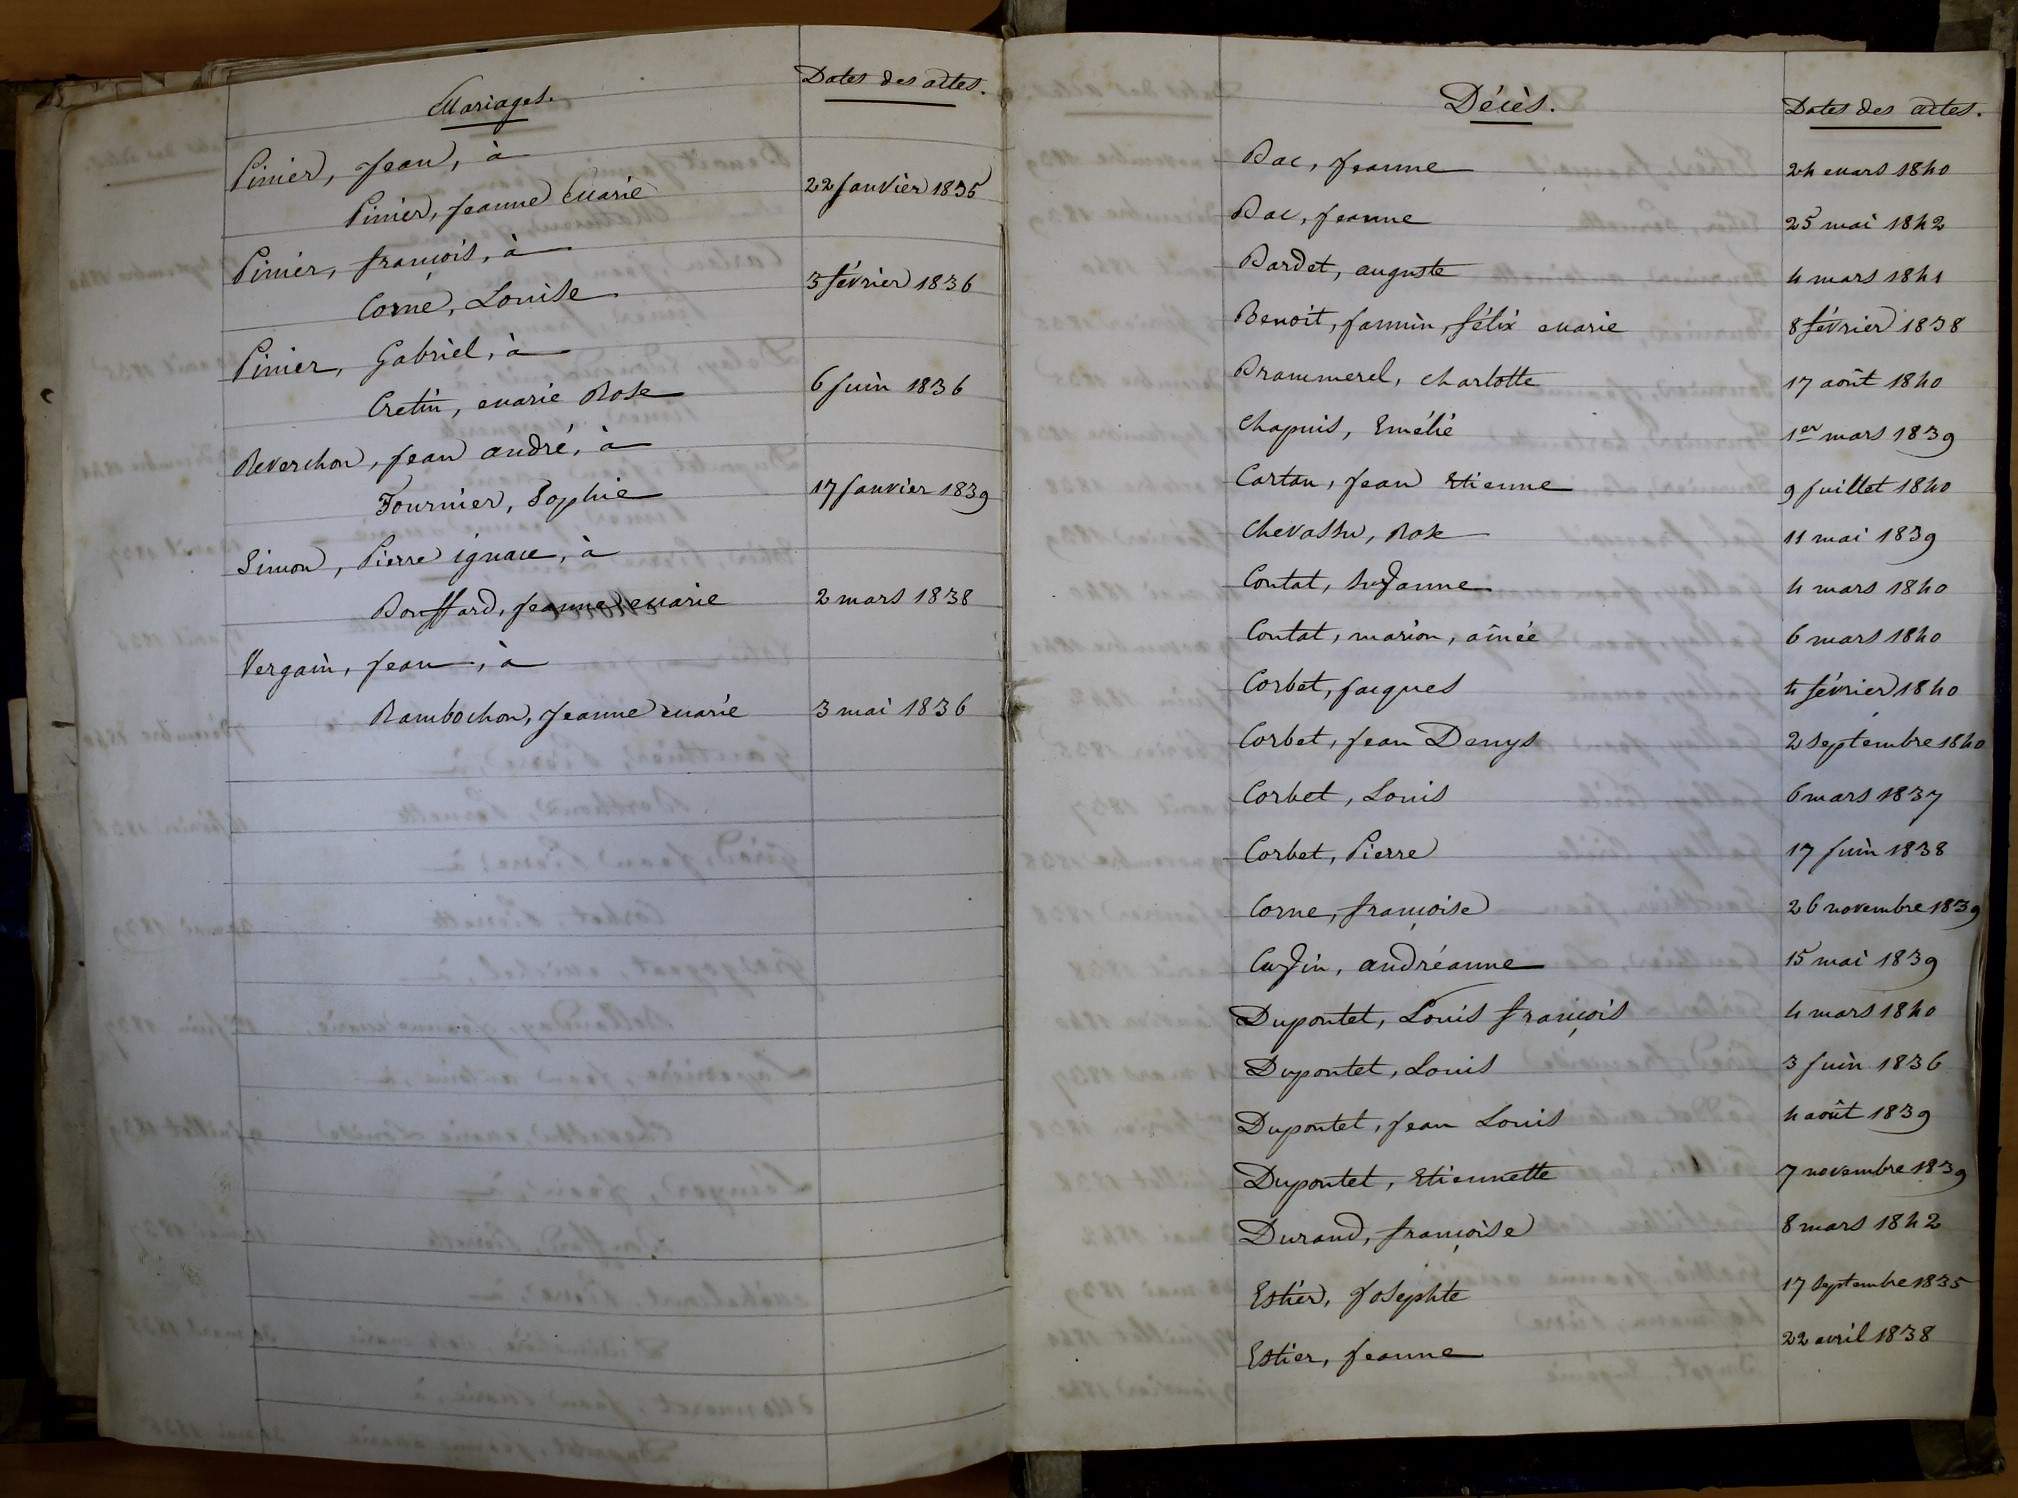 Mariages. Dates des actes.
Pinier, Jean, à
Pinier, Jeanne Marie 22 Janvier 1835
Pinier, françois, à
Corne, Louise 3 février 1836
Pinier, Gabriel, à
Cretin, Marie Rose 6 Juin 1836
Reverchon, Jean andré, à
Fournier, Sophie 17 Janvier 1839
Simon, Pierre ignace, à
Bouffard, Jeanne Marie 2 mars 1838
Vergain, Jean, à
Rambochon, Jeanne Marie 3 mai 1836
Décès. Dates des actes.
Bac, Jeanne 24 Mars 1840
Bac, Jeanne 25 mai 1842
Bardet, auguste 4 mars 1841
Benoit, Jannin, félix Marie 8 février 1838
Brammerel, Charlotte 17 août 1840
Chapuis, Emélie 1er mars 1839
Cartan, Jean Etienne 9 Juillet 1840
Chevassu, Rose 11 mai 1839
Contat, Suzanne 4 mars 1840
Contat, marion, aînée 6 mars 1840
Corbet, Jacques 4 février 1840
Corbet, Jean Denys 2 Septembre 1840
Corbet, Louis 6 mars 1837
Corbet, Pierre 17 Juin 1838
Corne, françoise 26 novembre 1839
Cuzin, andréanne 15 mai 1839
Dupontet, Louis françois 4 mars 1840
Dupontet, Louis 3 Juin 1836
Dupontet, Jean Louis 4 août 1839
Dupontet, Etiennette 7 novembre 1839
Durand, françoise 8 mars 1842
Estier, Josephte 17 Septembre 1835
Estier, Jeanne 22 avril 1838